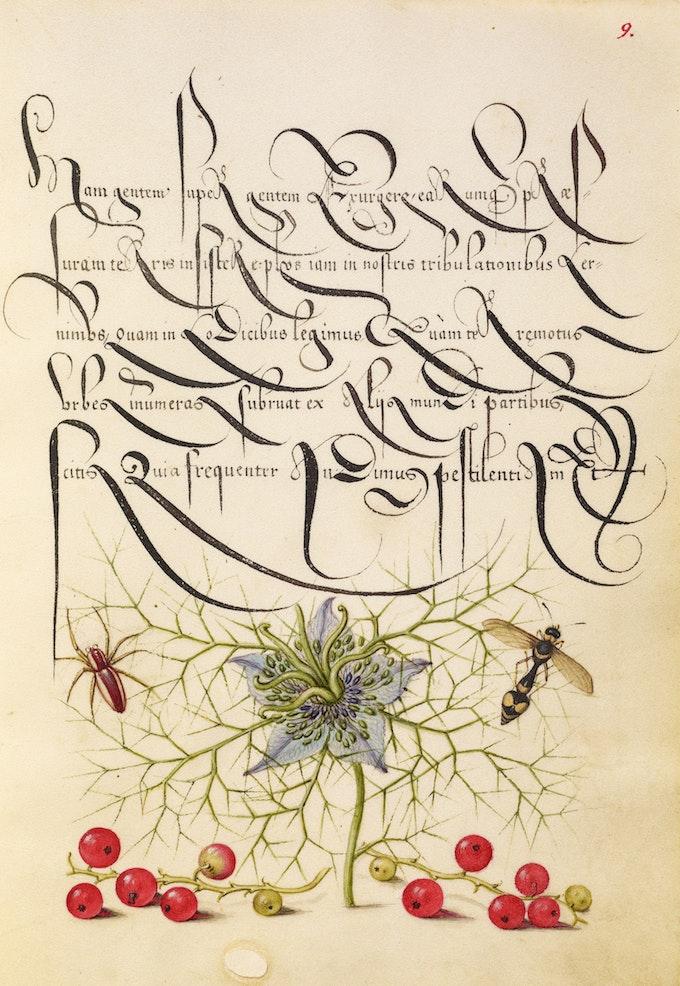 9.
Nam gentem super gentem exurgere, earumq́ præs-
suram terris insistere, plus iam in nostris tribulationibus cer-
nimus, Quam in Codicibus legimus. Quàm terręmotus
Urbes innumeras subruat ex alijs mundi partibus,
scitis Quia frequenter audiuimus, pestilentias